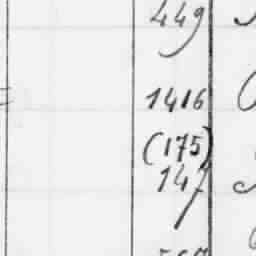 449
1416
(175)
147